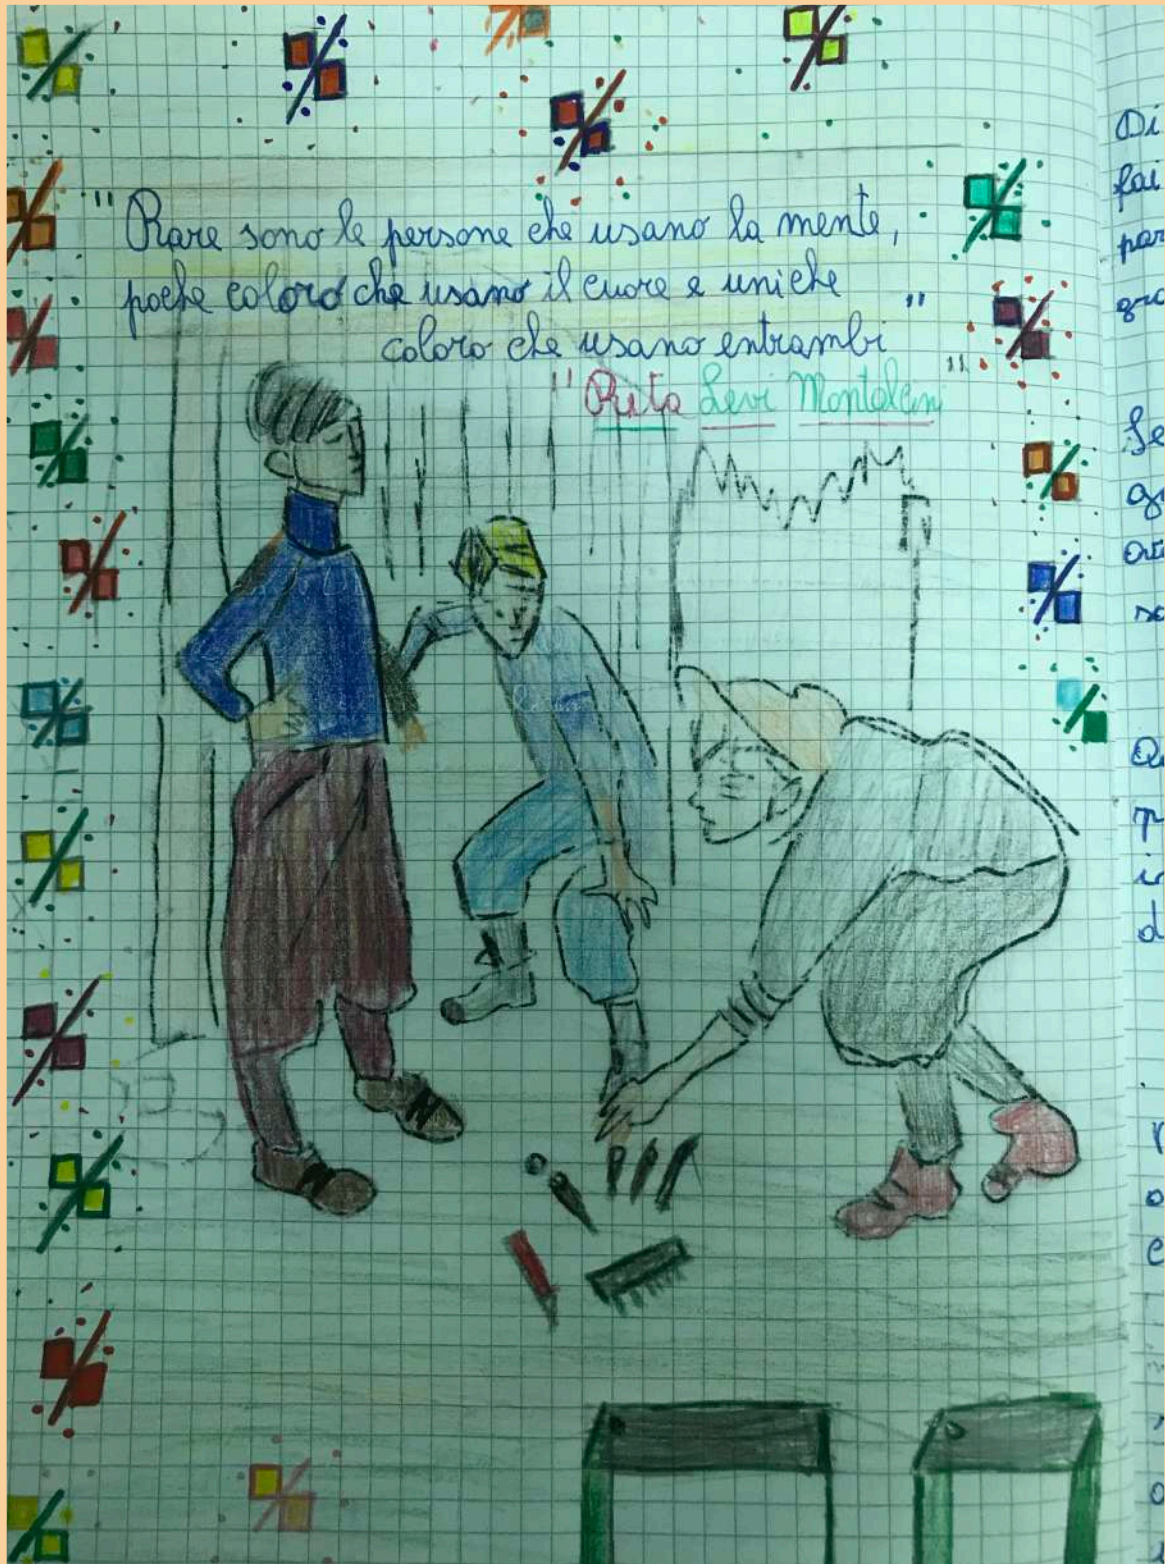 "Rare sono le persone che usano la mente,
poche coloro che usano il cuore e uniche
coloro che usano entrambi"
"Rita Levi Montalcini"
Di
fai
par
gra
Se